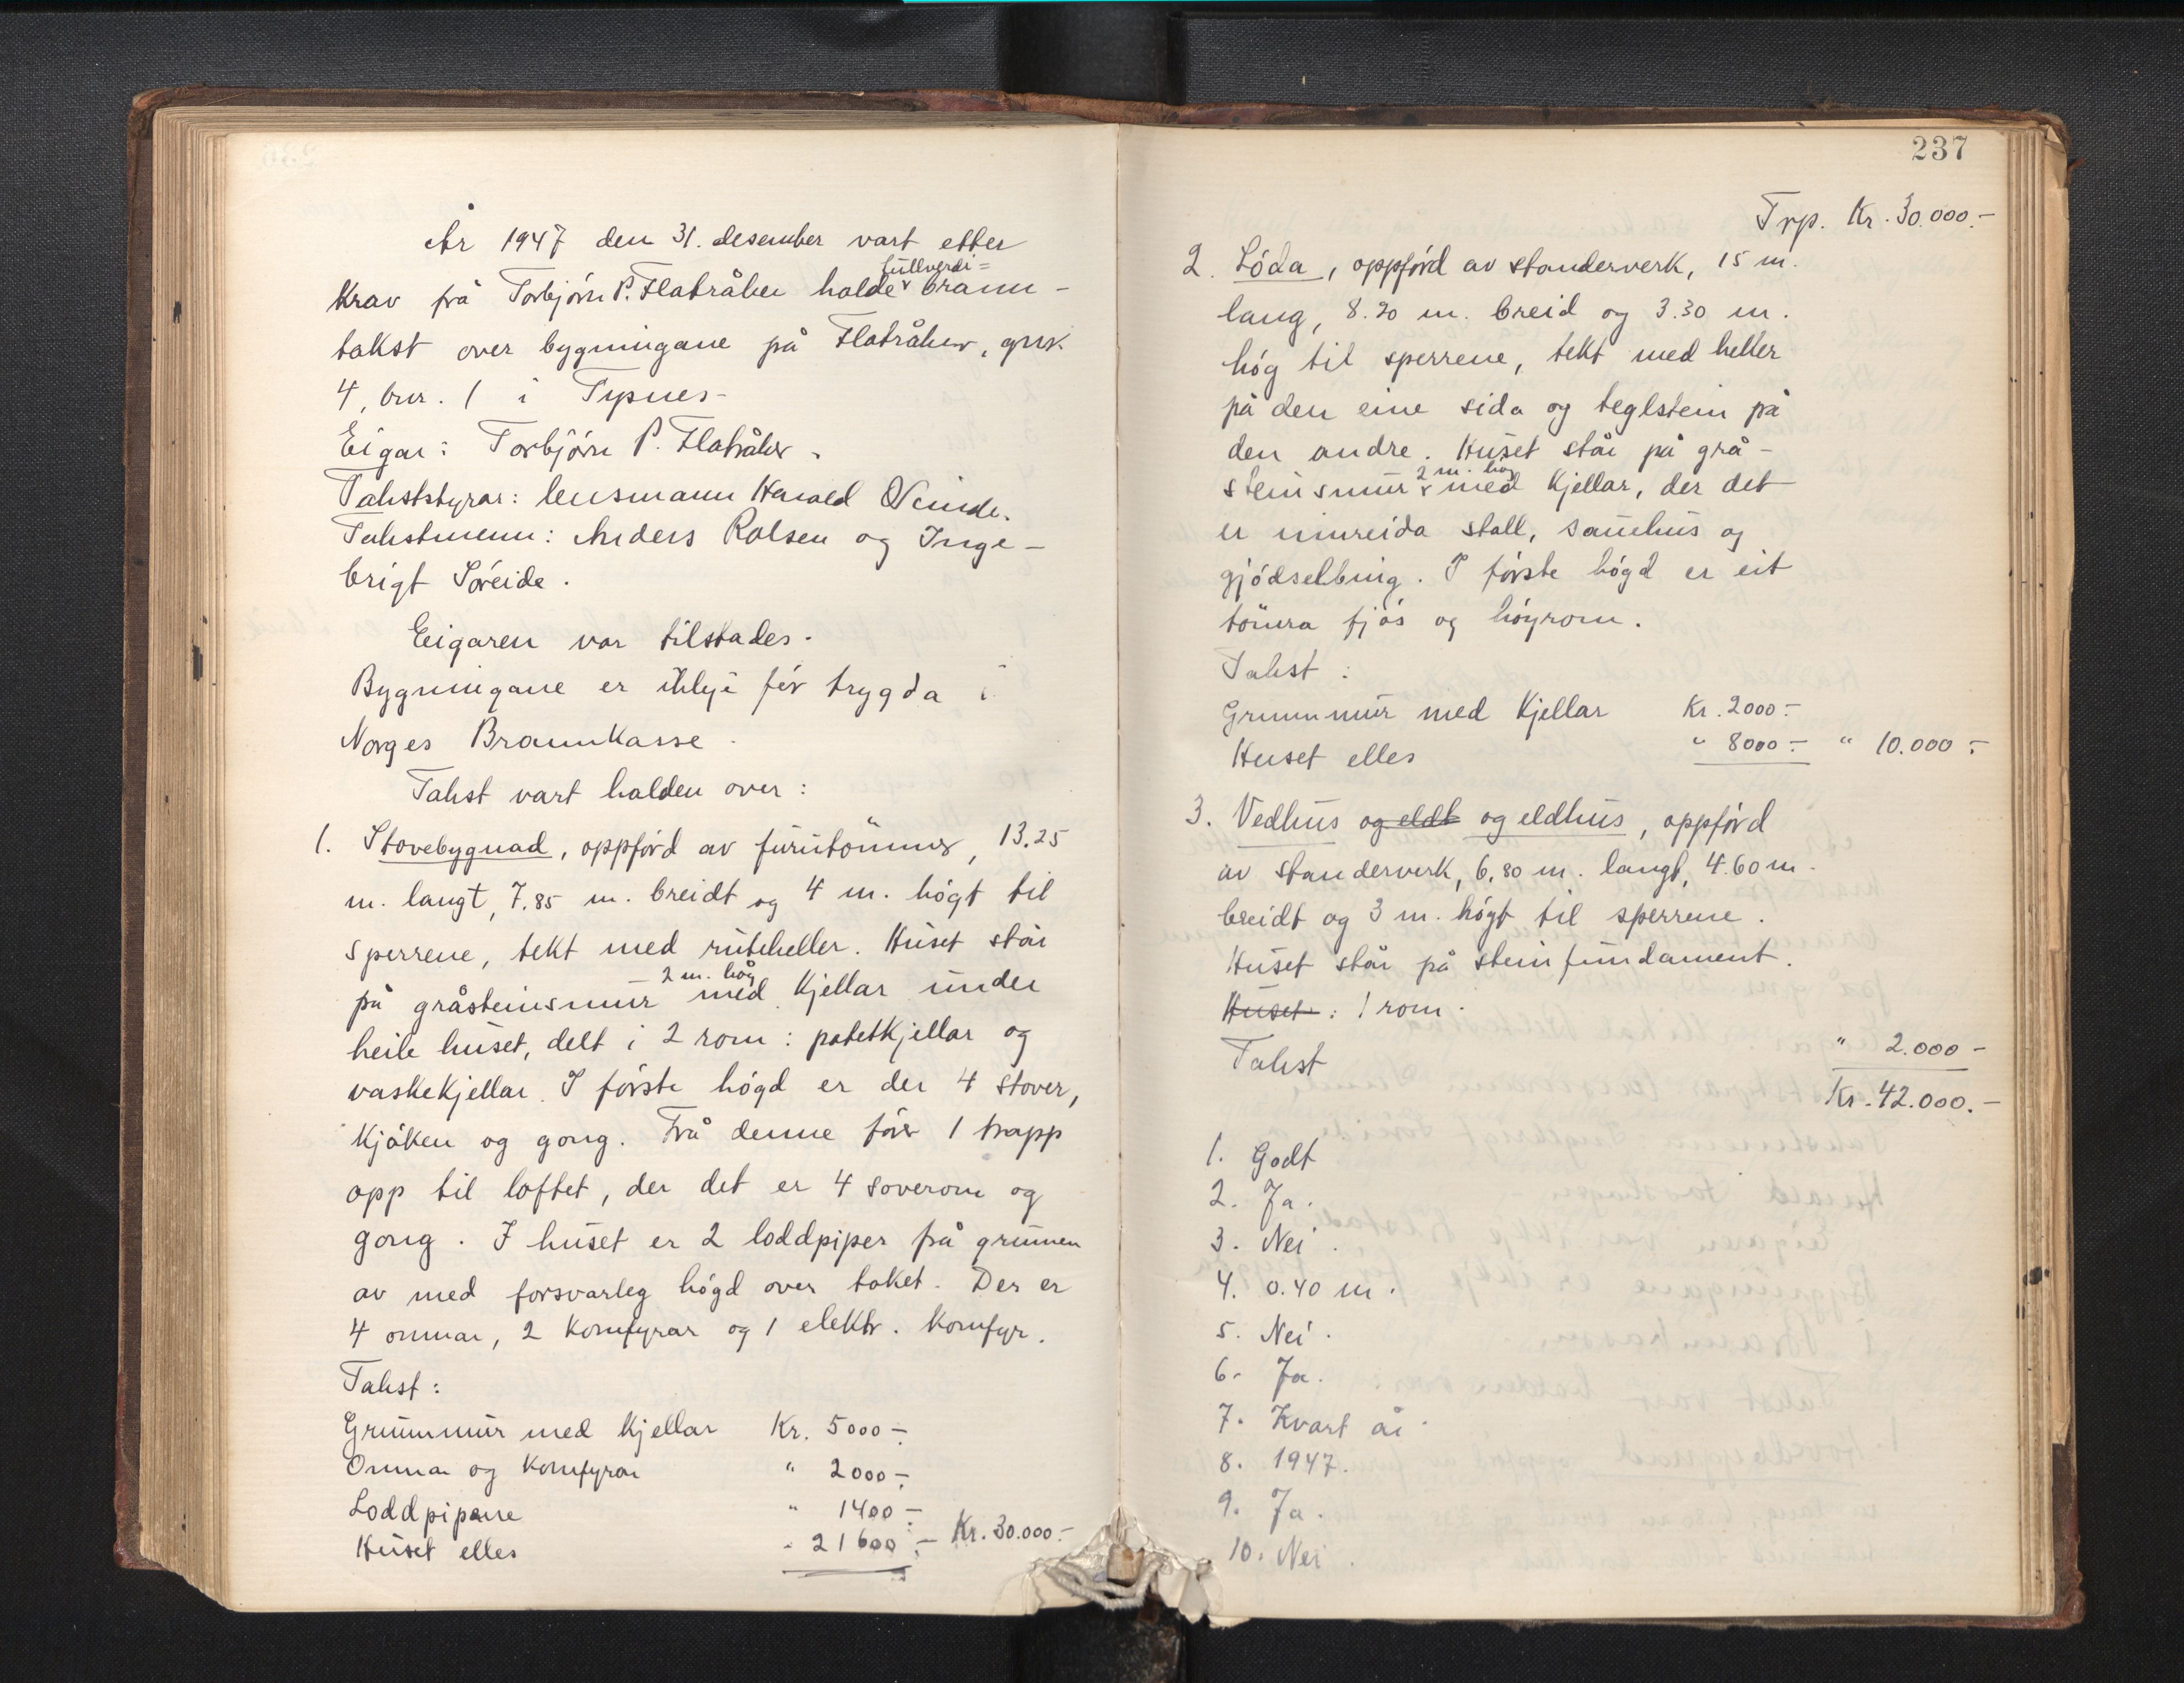 År 1947 den 31. desember vart etter
krav frå Torbjörn P. Flatråker halde fullverdi= brann-
takst over bygningane på Flatråker, gnr.
4, bnr. 1 i Tysnes-
Eigar: Torbjörn P. Flatråker.
Takststyrar: lensmann Harald Neinde.
Takstmenn: Anders Rolsen og Inge-
brigt Söreide.
Eigaren var tilstades.
Bygningane er ikkje för trygda i
Norges Brannkasse.
Takst vart halden over:
1. Stovebygnad, oppförd av furutömmer, 13.25
m. langt, 7.85 m. breidt og 4 m. högt til
sperrene, tekt med ruteheller. Huset står
på gråsteinsmur 2 m. höy med kjellar under
heile huset, delt i 2 rom: potetkjellar og
vaskekjellar. I förste högd er der 4 stover,
kjöken og gong. Frå denne förer 1 trapp
opp til loftet, der det er 4 soverom og
gong. I huset er 2 loddpiper frå grunnen
av med forsvarleg högd over taket. Der er
4 omnar, 2 komfyrar og 1 elektr. komfyr.
Takst:
Grunnmur med kjellar Kr. 5000.-
Omnar og komfyrar " 2000.-
Loddpipene " 1400.-
Huset elles " 21600.- Kr. 30.000.-
237
Trp. Kr. 30.000.-
2. Löda, oppförd av standerverk, 15 m.
lang, 8.20 m. breid og 3.30 m.
hög til sperrene, tekt med heller
på den eine sida og teglstein på
den andre. Huset står på grå-
steinsmur 2 m. höy med kjellar, der det
er innreida stall, sauehus og
gjödselbing. I förste högd er eit
tömra fjös og höyrom.
Takst:
Grunnmur med kjellar Kr. 2000.-
Huset elles " 8000.- " 10.000.-
3. Vedhus og eldt og eldhus, oppförd
av standerverk, 6,80 m. langt, 4.60 m.
breidt og 3 m. högt til sperrene.
Huset står på steinfundament.
Huset: 1 rom.
Takst " 2.000-
Kr. 42.000.-
1. Godt
2. Ja.
3. Nei.
4. 0.40 m.
5. Nei.
6. Ja.
7. Kvart år.
8. 1947.
9. Ja.
10. Nei.